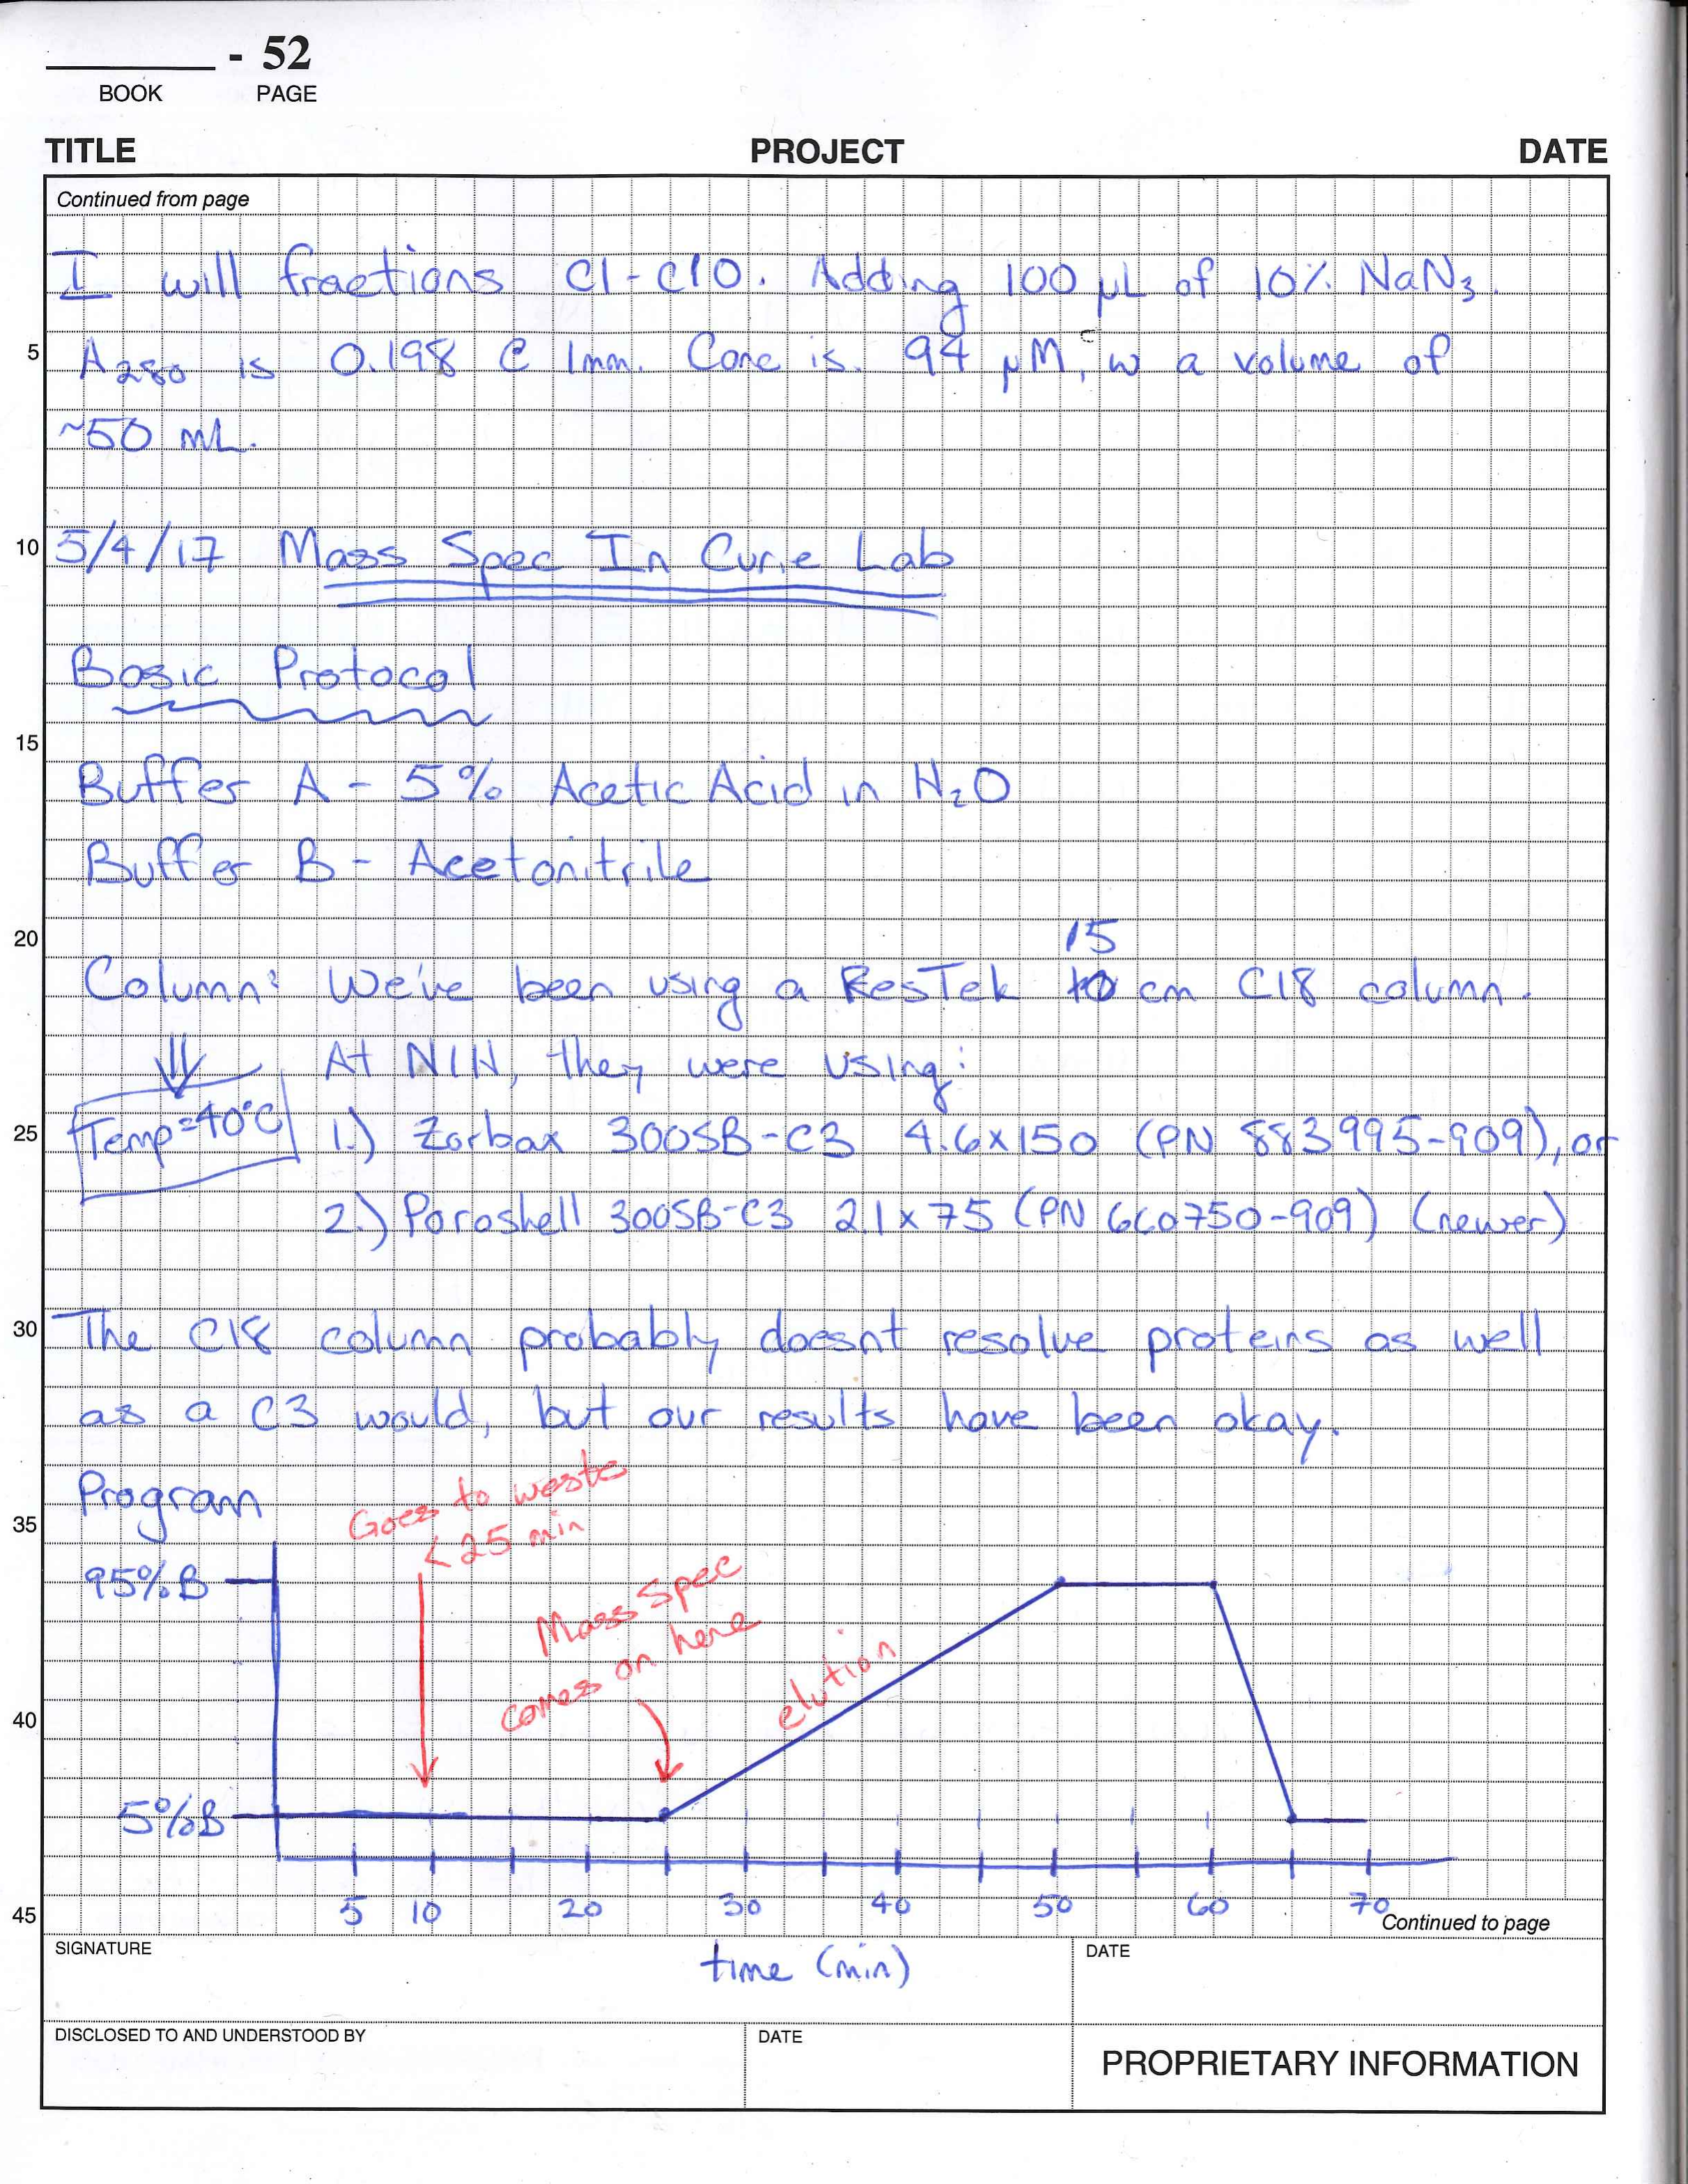 - 52
BOOK PAGE
TITLE PROJECT DATE
Continued from page
I will fractions C1-C10. Adding 100 µL of 10% NaN₃.
5 A₂₈₀ is 0.198 @ 1mm. Conc is 94 µM, w a volume of
~50 mL.
10 5/4/17 Mass Spec In Curie Lab
Basic Protocol
15
Buffer A - 5% Acetic Acid in H₂O
Buffer B - Acetonitrile
20 15
Column: We've been using a ResTek 10 cm C18 column.
At NIH, they were using:
25 Temp=40°C 1.) Zorbax 300SB-C3 4.6x150 (PN 883995-909), or
2.) Poroshell 300SB-C3 2.1x75 (PN 660750-909) (newer)
30 The C18 column probably doesnt resolve proteins as well
as a C3 would, but our results have been okay.
Program
35 Goes to waste
< 25 min
95% B
Mass Spec
comes on here
elution
40
5% B
5 10 20 30 40 50 60 70
45 Continued to page
time (min)
SIGNATURE DATE
DISCLOSED TO AND UNDERSTOOD BY DATE
PROPRIETARY INFORMATION